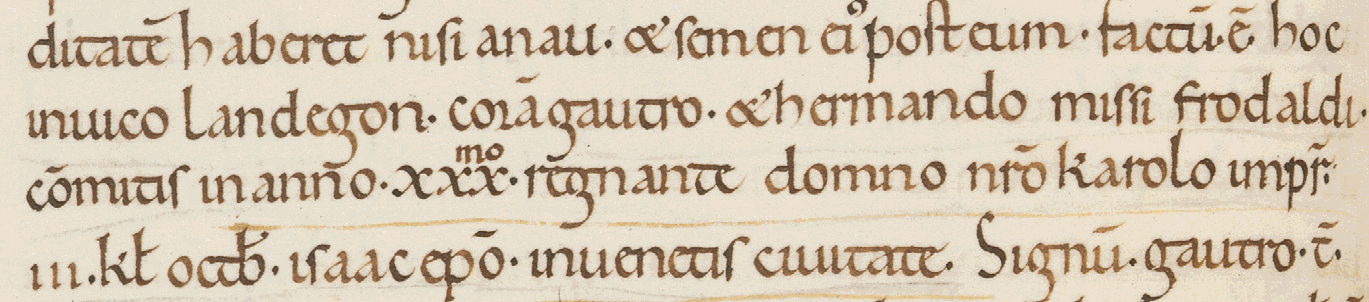 ditatē haberet nisi anau· & semen ei⁹ post eum· factū·ē· hoc
inuico landegon· corā gautro· & hermando missi frodaldi·
cōmitis in anño· xxx^mo· regnante domno nr̄o karolo imp̄r·
iii·kł octb̄· isaac ep̄o· inuenetis ciuitate· Signū· gautro· t̄·